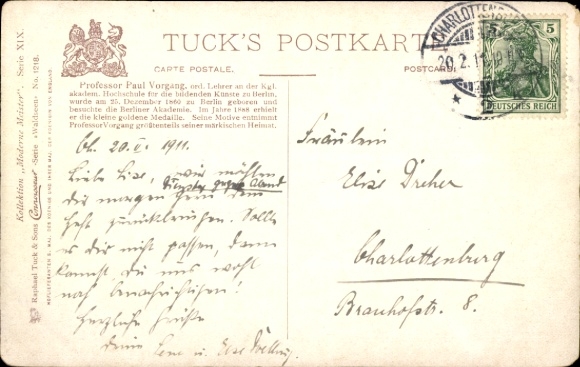 TUCK'S POSTKART
CARTE POSTALE. POSTCARD
Professor Paul Vorgang, ord. Lehrer an der Kgl.
akadem. Hochschule für die bildenden Künste zu Berlin,
wurde am 25. Dezember 1860 zu Berlin geboren und
besuchte die Berliner Akademie. Im Jahre 1888 erhielt
er die kleine goldene Medaille. Seine Motive entnimmt
Professor Vorgang größtenteils seiner märkischen Heimat.
Kollektion „Moderne Meister“. Serie XIX.
Raphael Tuck & Sons Connoisseur-Serie «Waldseen» No. 1218.
CHARLOTTENB
20.2.11
5
DEUTSCHES REICH
Ch. 20. II. 1911.
Liebe Else, wir möchten
Dienstag gegen Abend
dir morgen gern dein
Heft zurückbringen. Sollte
es dir nicht passen, dann
kannst du uns wohl
noch benachrichtigen!
Herzliche Grüße
deine Lene u. Else
Fräulein
Elise Dreher
Charlottenburg
Brauhofstr. 8.